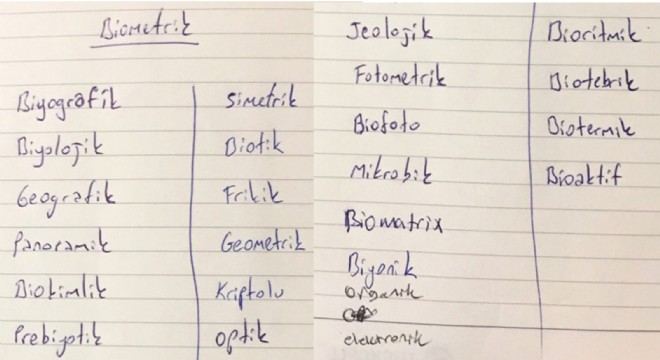 Biometrik
Biyografik
Biyolojik
Geografik
Panoramik
Biokimlik
Prebiyotik
Simetrik
Biotik
Frikik
Geometrik
Kriptolu
optik
Jeolojik
Fotometrik
Biofoto
Mikrobik
Biomatrix
Biyonik
organik
elektronik
Bioritmik
Biotebrik
Biotermik
Bioaktif